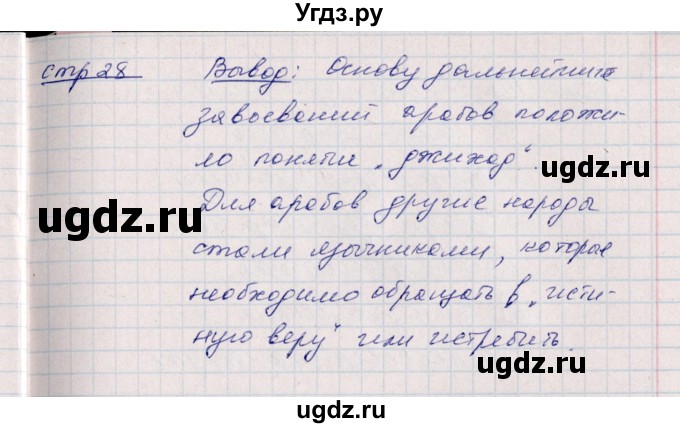 Угдз.ру
стр 28 Вывод: Основу дальнейших
завоеваний арабов положи-
ло понятие „джихад".
ugdz.ru
Для арабов другие народы
ugdz.ru
стали язычниками, которые
необходимо обращать в „исти-
ную веру" или истребить.
ugdz.ru
ugdz.ru
ugdz.ru